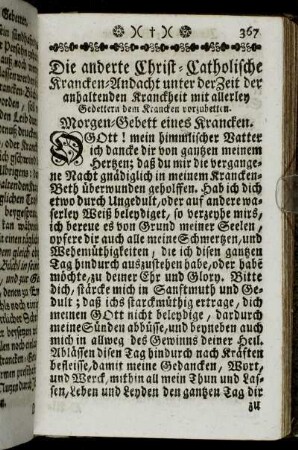 )( † )( 367
Die anderte Christ-Catholische
Krancken-Andacht unter der Zeit der
anhaltenden Kranckheit mit allerley
Gebettern dem Krancken vorzubetten.
Morgen-Gebett eines Krancken.
OGott! mein himmlischer Vatter
ich dancke dir von gantzen meinem
Hertzen; daß du mir die vergange-
ne Nacht gnädiglich in meinem Krancken-
Beth überwunden geholffen. Hab ich dich
etwo durch Ungedult, oder auf andere wa-
serley Weiß beleydiget, so verzeyhe mirs,
ich bereue es von Grund meiner Seelen,
opfere dir auch alle meine Schmertzen, und
Wehemüthigkeiten; die ich disen gantzen
Tag hindurch auszustehen habe, oder habe
möchte, zu deiner Ehr und Glory. Bitte
dich, stärcke mich in Sanftmuth und Ge-
dult; daß ichs starckmüthig ertrage, dich
meinen GOtt nicht beleydige, dardurch
meine Sünden abbüsse, und beyneben auch
mich in allweg des Gewinns deiner Heil.
Ablässen disen Tag hindurch nach Kräften
befleisse, damit meine Gedancken, Wort,
und Werck, mithin all mein Thun und Las-
sen, Leben und Leyden den gantzen Tag dir
zu